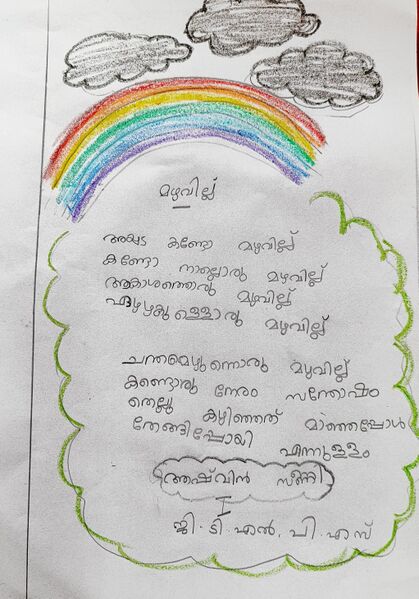 മഴവില്ല്
അമ്പട കണ്ടോ മഴവില്ല്
കണ്ടോ നല്ലൊരു മഴവില്ല്
ആകാശത്തൊരു മഴവില്ല്
ഏഴഴകുള്ളൊരു മഴവില്ല്
ചന്തമെഴുന്നൊരു മഴവില്ല്
കണ്ടൊരു നേരം സന്തോഷം
തെല്ലു കഴിഞ്ഞത് മാഞ്ഞപ്പോൾ
തേങ്ങിപ്പോയി എന്നുള്ളം
അഷ്‌വിൻ സണ്ണി
I
ജി. ടി. എൽ. പി. എസ്